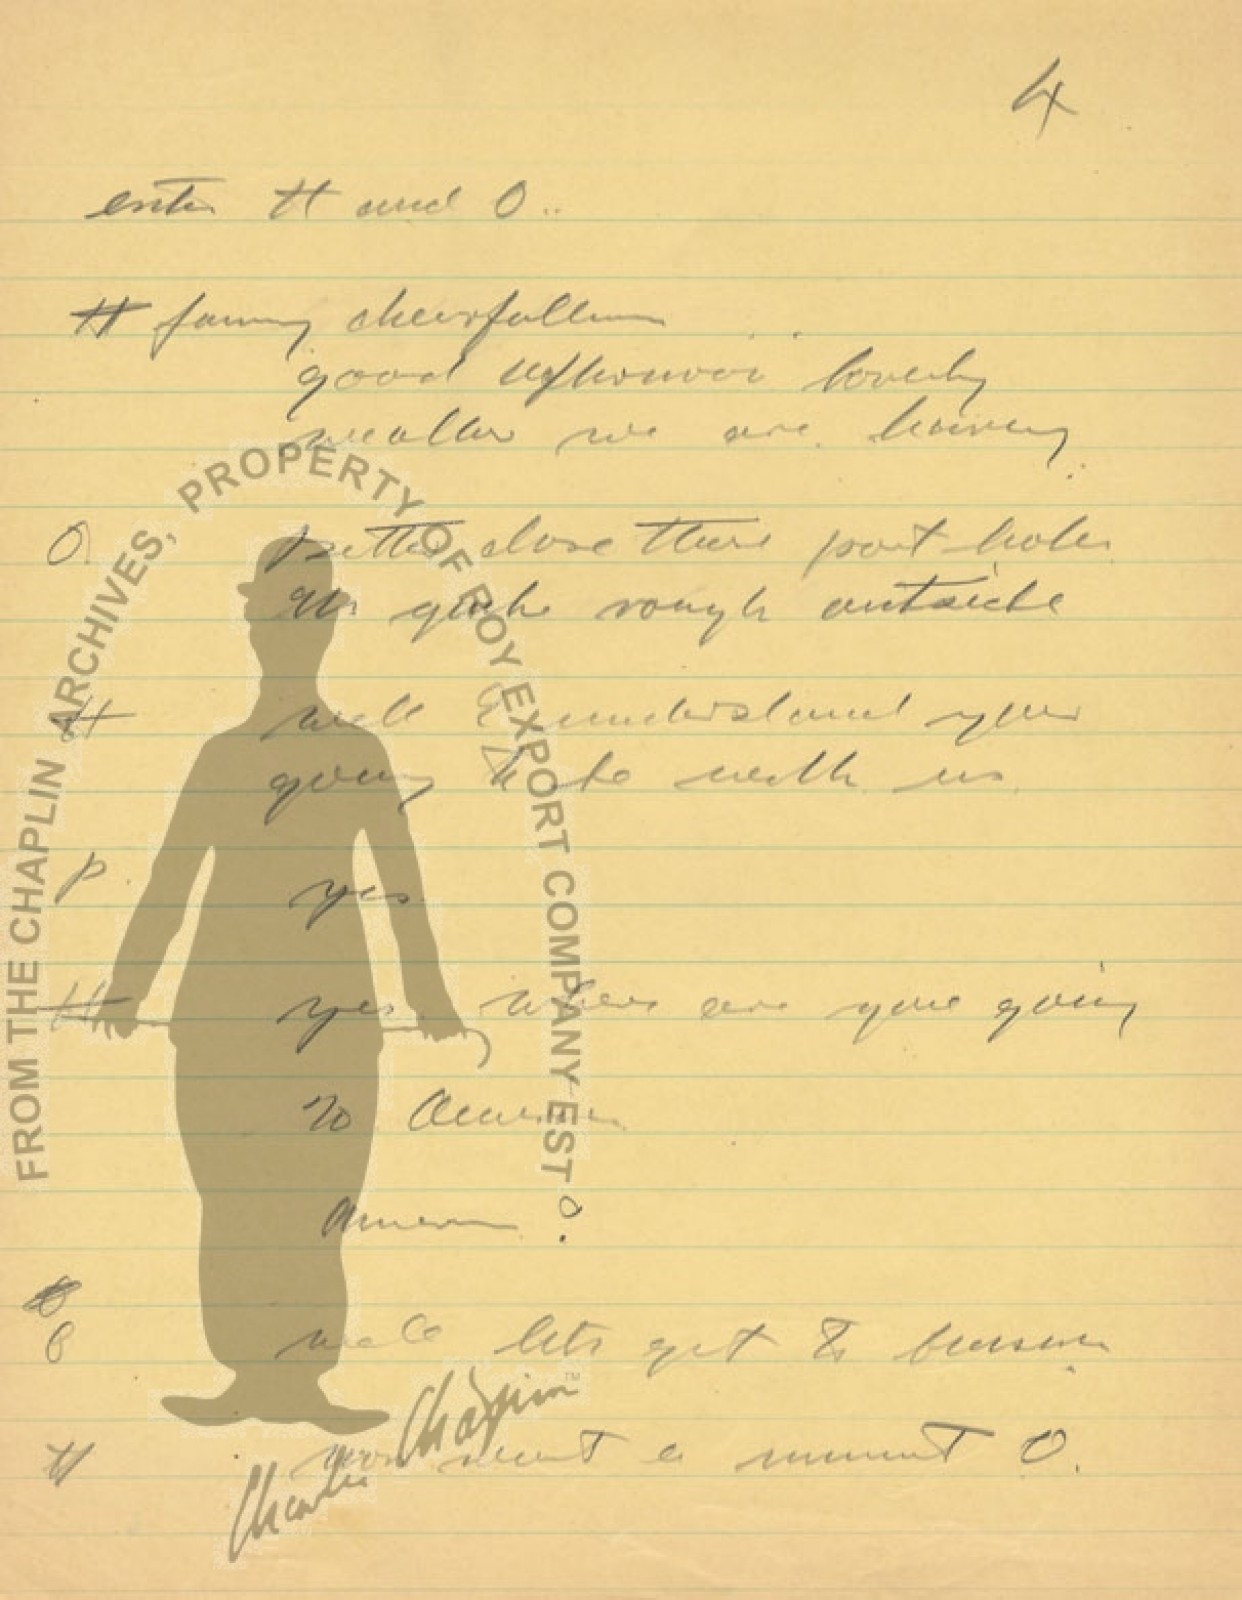 4
enter H and O..
H fanny cheerfullness
good afternoon lovely
weather we are having
O. better close these port holes
its quite rough outside
H well I understand your
going to be with us
P. yes.
H yes. where are you going
To America
America ?
O well lets get to business
H now wait a moment O.
FROM THE CHAPLIN ARCHIVES, PROPERTY OF ROY EXPORT COMPANY EST
Charlie Chaplin ™